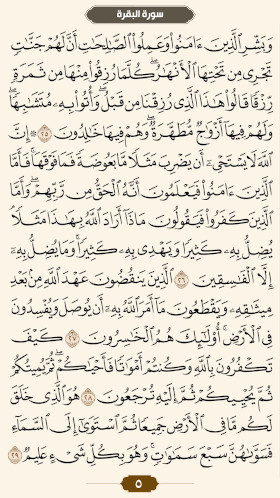 سورة البقرة
وَبَشِّرِ ٱلَّذِينَ ءَامَنُوا۟ وَعَمِلُوا۟ ٱلصَّـٰلِحَـٰتِ أَنَّ لَهُمْ جَنَّـٰتٍ
تَجْرِى مِن تَحْتِهَا ٱلْأَنْهَـٰرُ ۖ كُلَّمَا رُزِقُوا۟ مِنْهَا مِن ثَمَرَةٍ
رِّزْقًا ۙ قَالُوا۟ هَـٰذَا ٱلَّذِى رُزِقْنَا مِن قَبْلُ ۖ وَأُتُوا۟ بِهِۦ مُتَشَـٰبِهًا ۖ
وَلَهُمْ فِيهَآ أَزْوَٰجٌ مُّطَهَّرَةٌ ۖ وَهُمْ فِيهَا خَـٰلِدُونَ ٢٥ ۞ إِنَّ
ٱللَّهَ لَا يَسْتَحْىِۦٓ أَن يَضْرِبَ مَثَلًا مَّا بَعُوضَةً فَمَا فَوْقَهَا ۚ فَأَمَّا
ٱلَّذِينَ ءَامَنُوا۟ فَيَعْلَمُونَ أَنَّهُ ٱلْحَقُّ مِن رَّبِّهِمْ ۖ وَأَمَّا
ٱلَّذِينَ كَفَرُوا۟ فَيَقُولُونَ مَاذَآ أَرَادَ ٱللَّهُ بِهَـٰذَا مَثَلًا ۘ
يُضِلُّ بِهِۦ كَثِيرًا وَيَهْدِى بِهِۦ كَثِيرًا ۚ وَمَا يُضِلُّ بِهِۦٓ
إِلَّا ٱلْفَـٰسِقِينَ ٢٦ ٱلَّذِينَ يَنقُضُونَ عَهْدَ ٱللَّهِ مِنۢ بَعْدِ
مِيثَـٰقِهِۦ وَيَقْطَعُونَ مَآ أَمَرَ ٱللَّهُ بِهِۦٓ أَن يُوصَلَ وَيُفْسِدُونَ
فِى ٱلْأَرْضِ ۚ أُو۟لَـٰٓئِكَ هُمُ ٱلْخَـٰسِرُونَ ٢٧ كَيْفَ
تَكْفُرُونَ بِٱللَّهِ وَكُنتُمْ أَمْوَٰتًا فَأَحْيَـٰكُمْ ۖ ثُمَّ يُمِيتُكُمْ
ثُمَّ يُحْيِيكُمْ ثُمَّ إِلَيْهِ تُرْجَعُونَ ٢٨ هُوَ ٱلَّذِى خَلَقَ
لَكُم مَّا فِى ٱلْأَرْضِ جَمِيعًا ثُمَّ ٱسْتَوَىٰٓ إِلَى ٱلسَّمَآءِ
فَسَوَّىٰهُنَّ سَبْعَ سَمَـٰوَٰتٍ ۚ وَهُوَ بِكُلِّ شَىْءٍ عَلِيمٌ ٢٩
٥